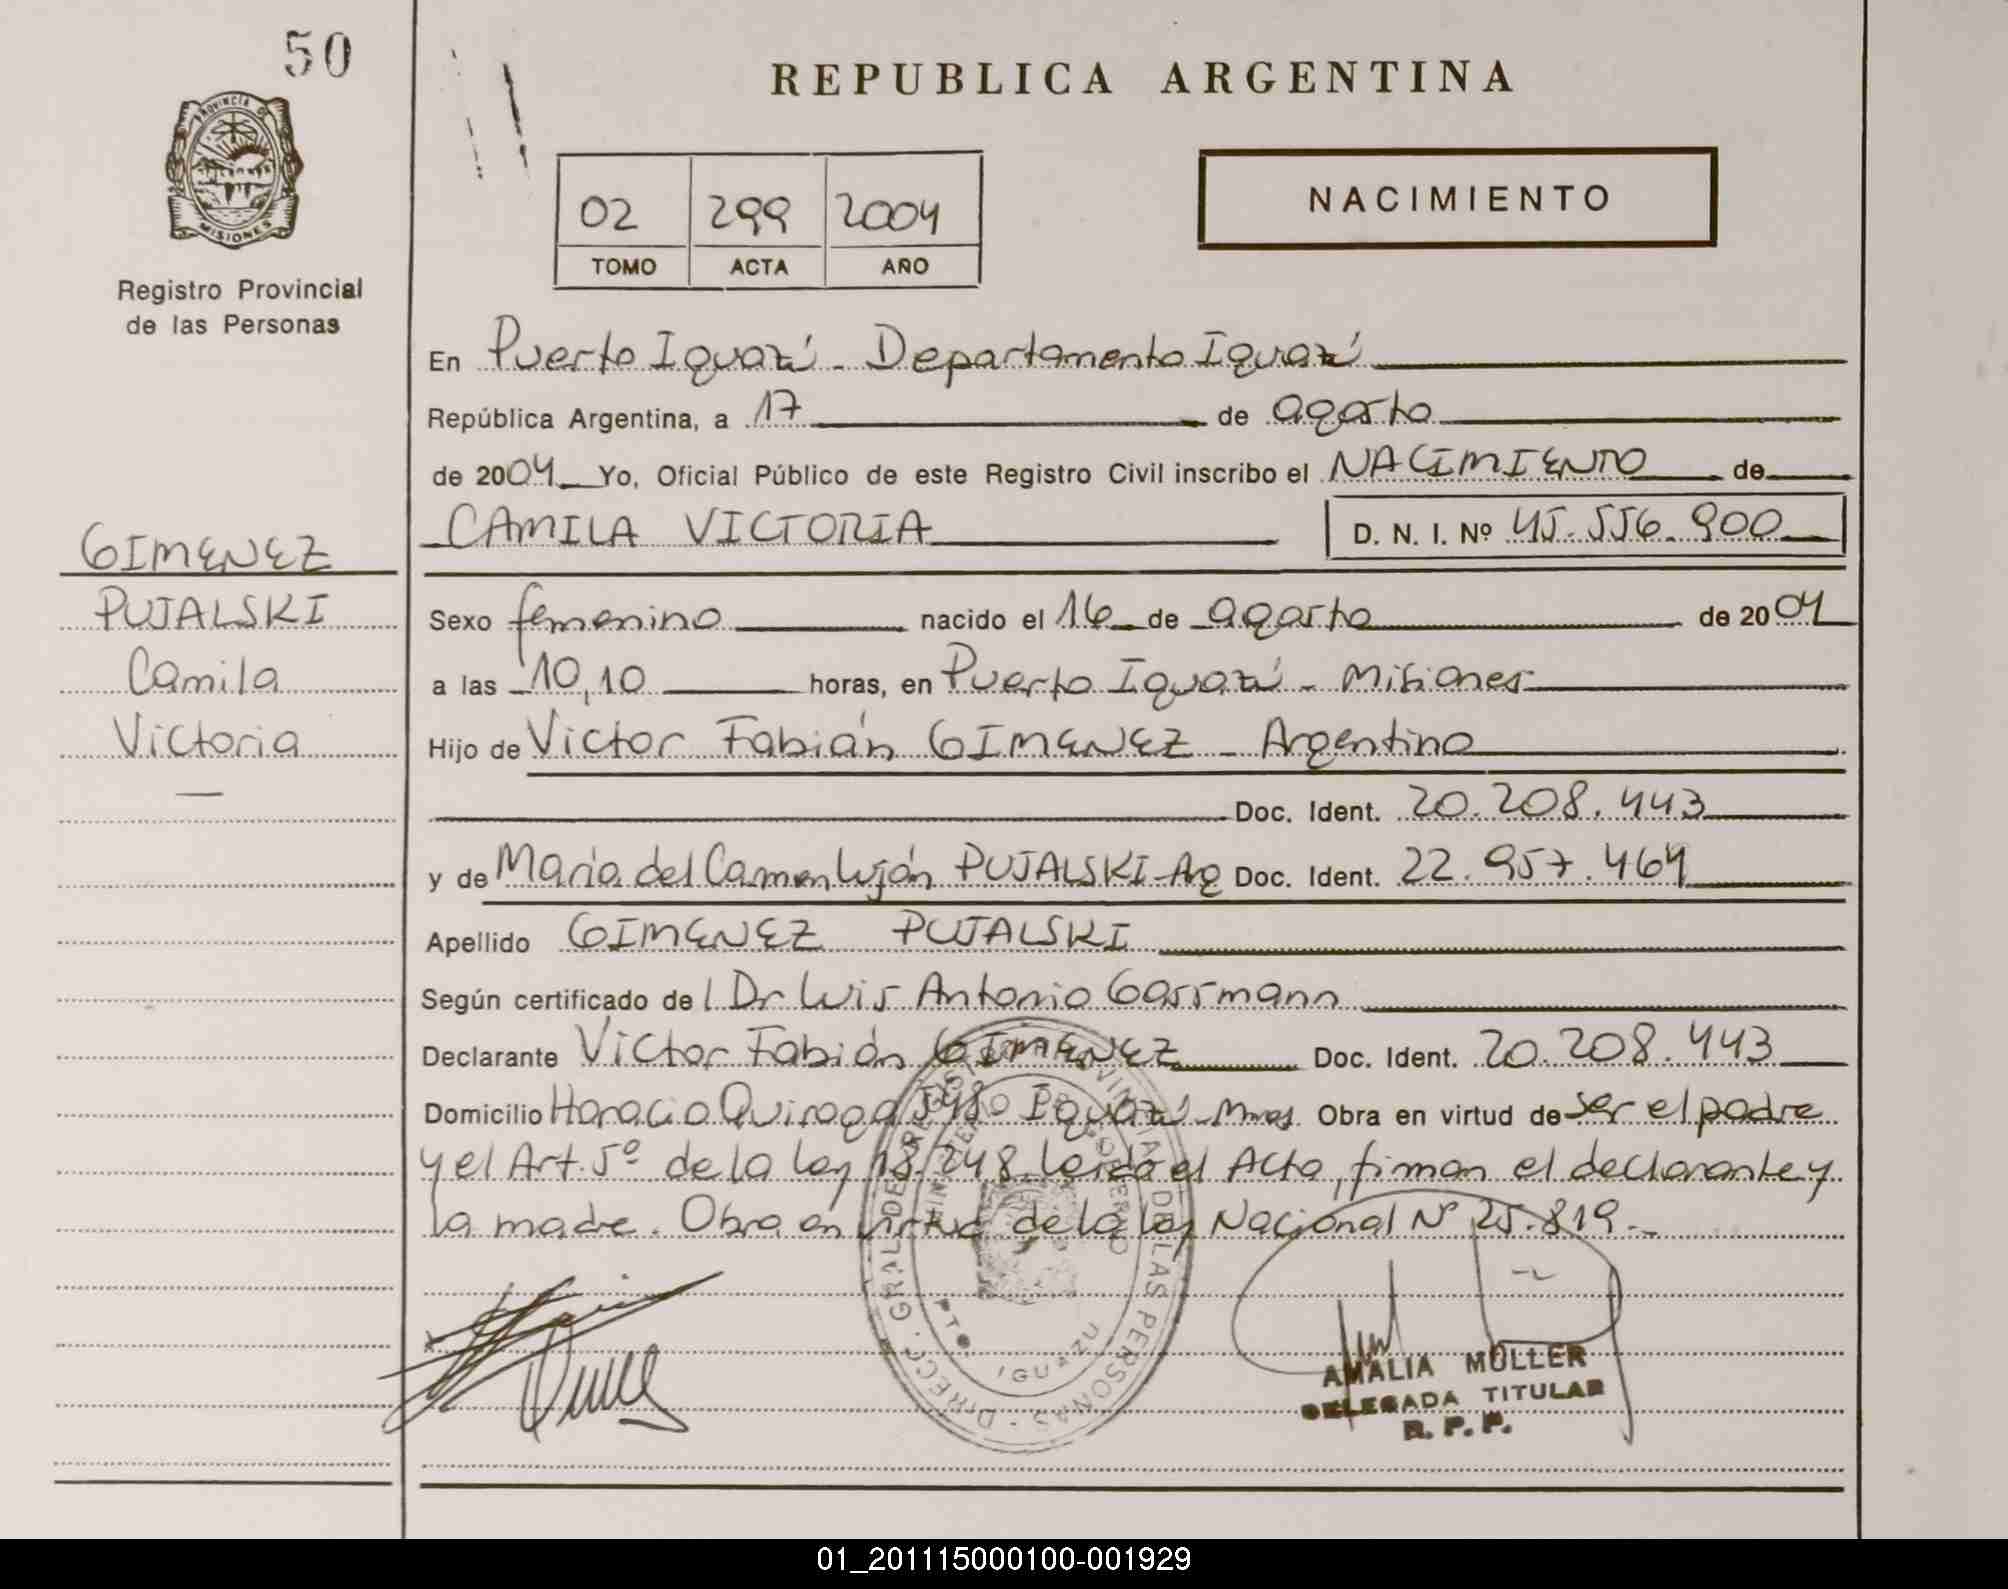 50
PROVINCIA DE
MISIONES
Registro Provincial
de las Personas
REPUBLICA ARGENTINA
02 299 2004
TOMO ACTA AÑO
NACIMIENTO
En Puerto Iguazú - Departamento Iguazú
República Argentina, a 17 de agosto
de 2004 Yo, Oficial Público de este Registro Civil inscribo el NACIMIENTO de
CAMILA VICTORIA D. N. I. Nº 45.556.900
GIMENEZ
PUJALSKI
Camila
Victoria
Sexo femenino nacido el 16 de agosto de 2004
a las 10,10 horas, en Puerto Iguazú - Misiones
Hijo de Victor Fabián GIMENEZ - Argentino
Doc. Ident. 20.208.443
y de María del Carmen Luján PUJALSKI-Arg Doc. Ident. 22.957.464
Apellido GIMENEZ PUJALSKI
Según certificado del Dr Luis Antonio Gassmann
Declarante Victor Fabián GIMENEZ Doc. Ident. 20.208.443
Domicilio Horacio Quiroga 548 - Iguazú - Mnes Obra en virtud de ser el padre
y el Art. 5º de la Ley 18.248. Leída el Acta, firman el declarante y
la madre. Obra en virtud de la Ley Nacional Nº 25.819.-
DIRECC. GRAL. DE REGISTRO PROVINCIAL DE LAS PERSONAS
MINISTERIO DE GOBIERNO
PTO. IGUAZU
AMALIA MULLER
DELEGADA TITULAR
R. P. P.
01_201115000100-001929